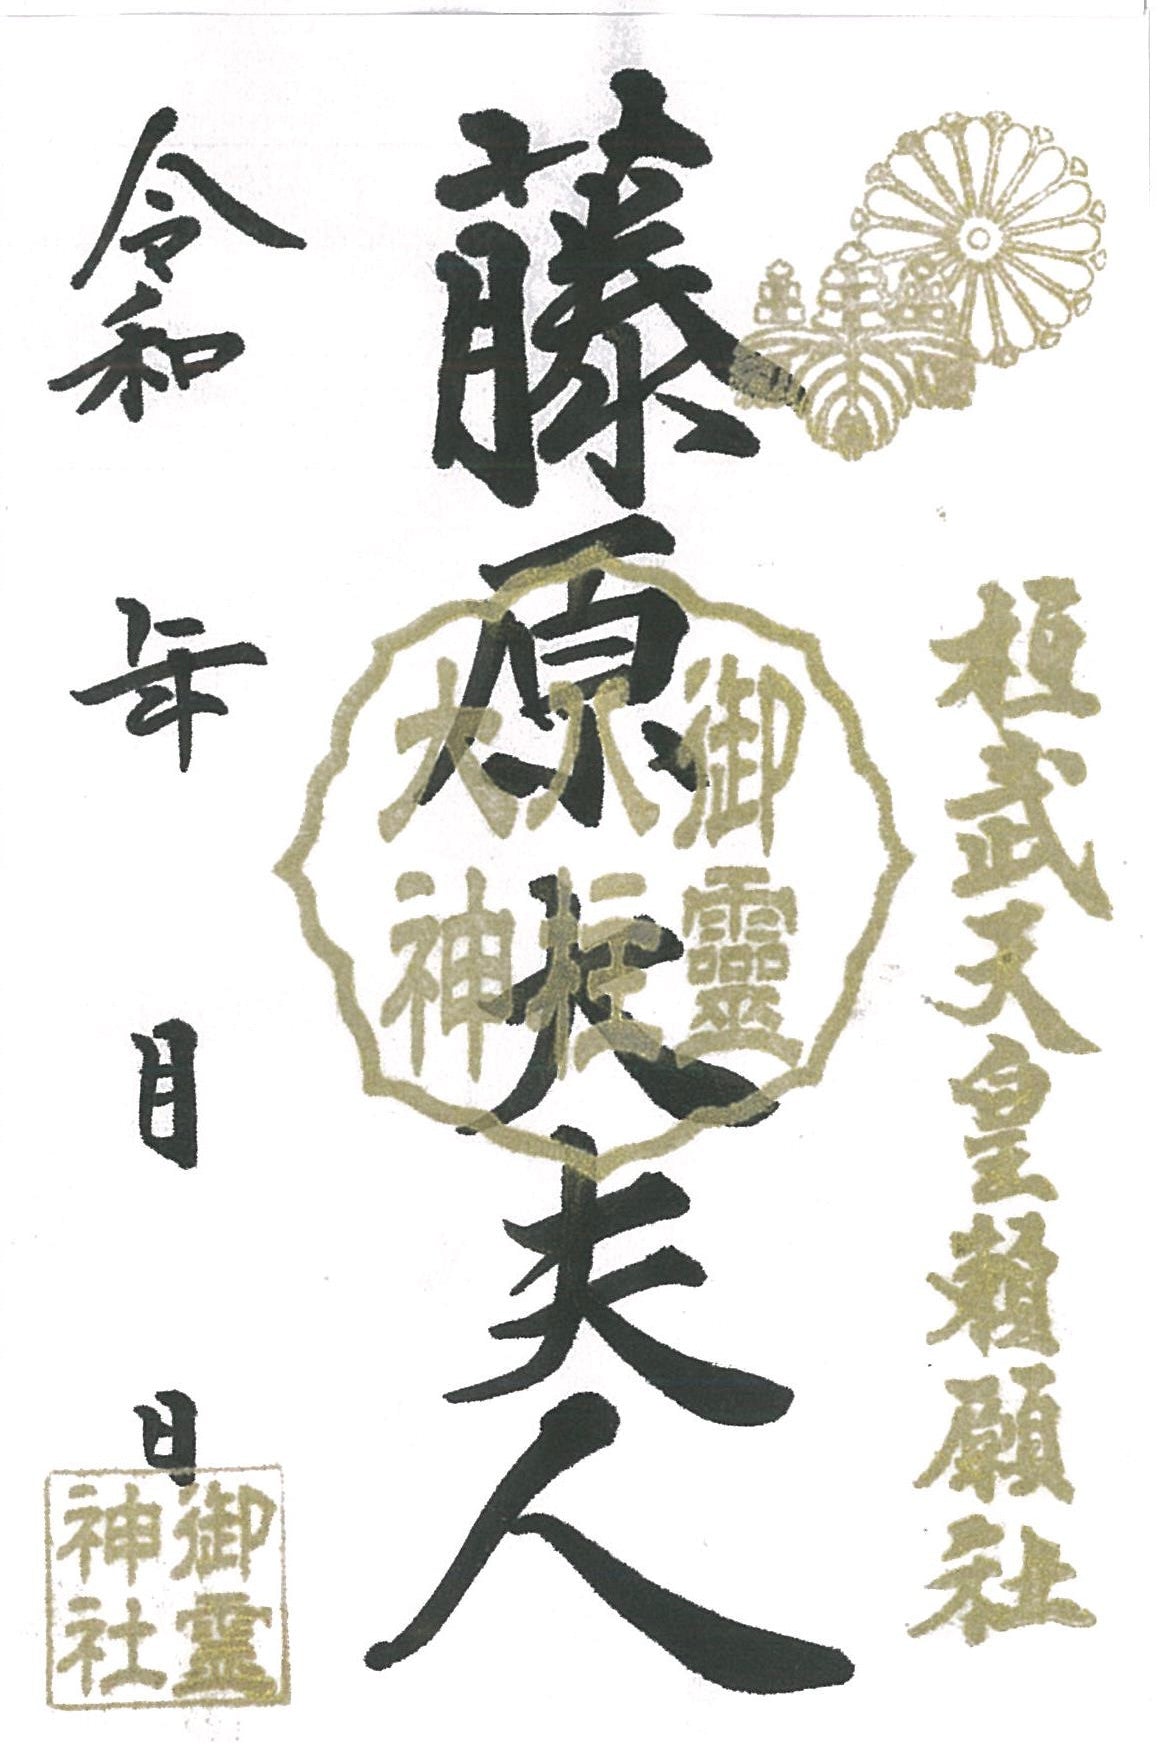 桓武天皇頼願社
藤原大夫人
御靈
八柱
大神
令和 年 月 日
御霊
神社